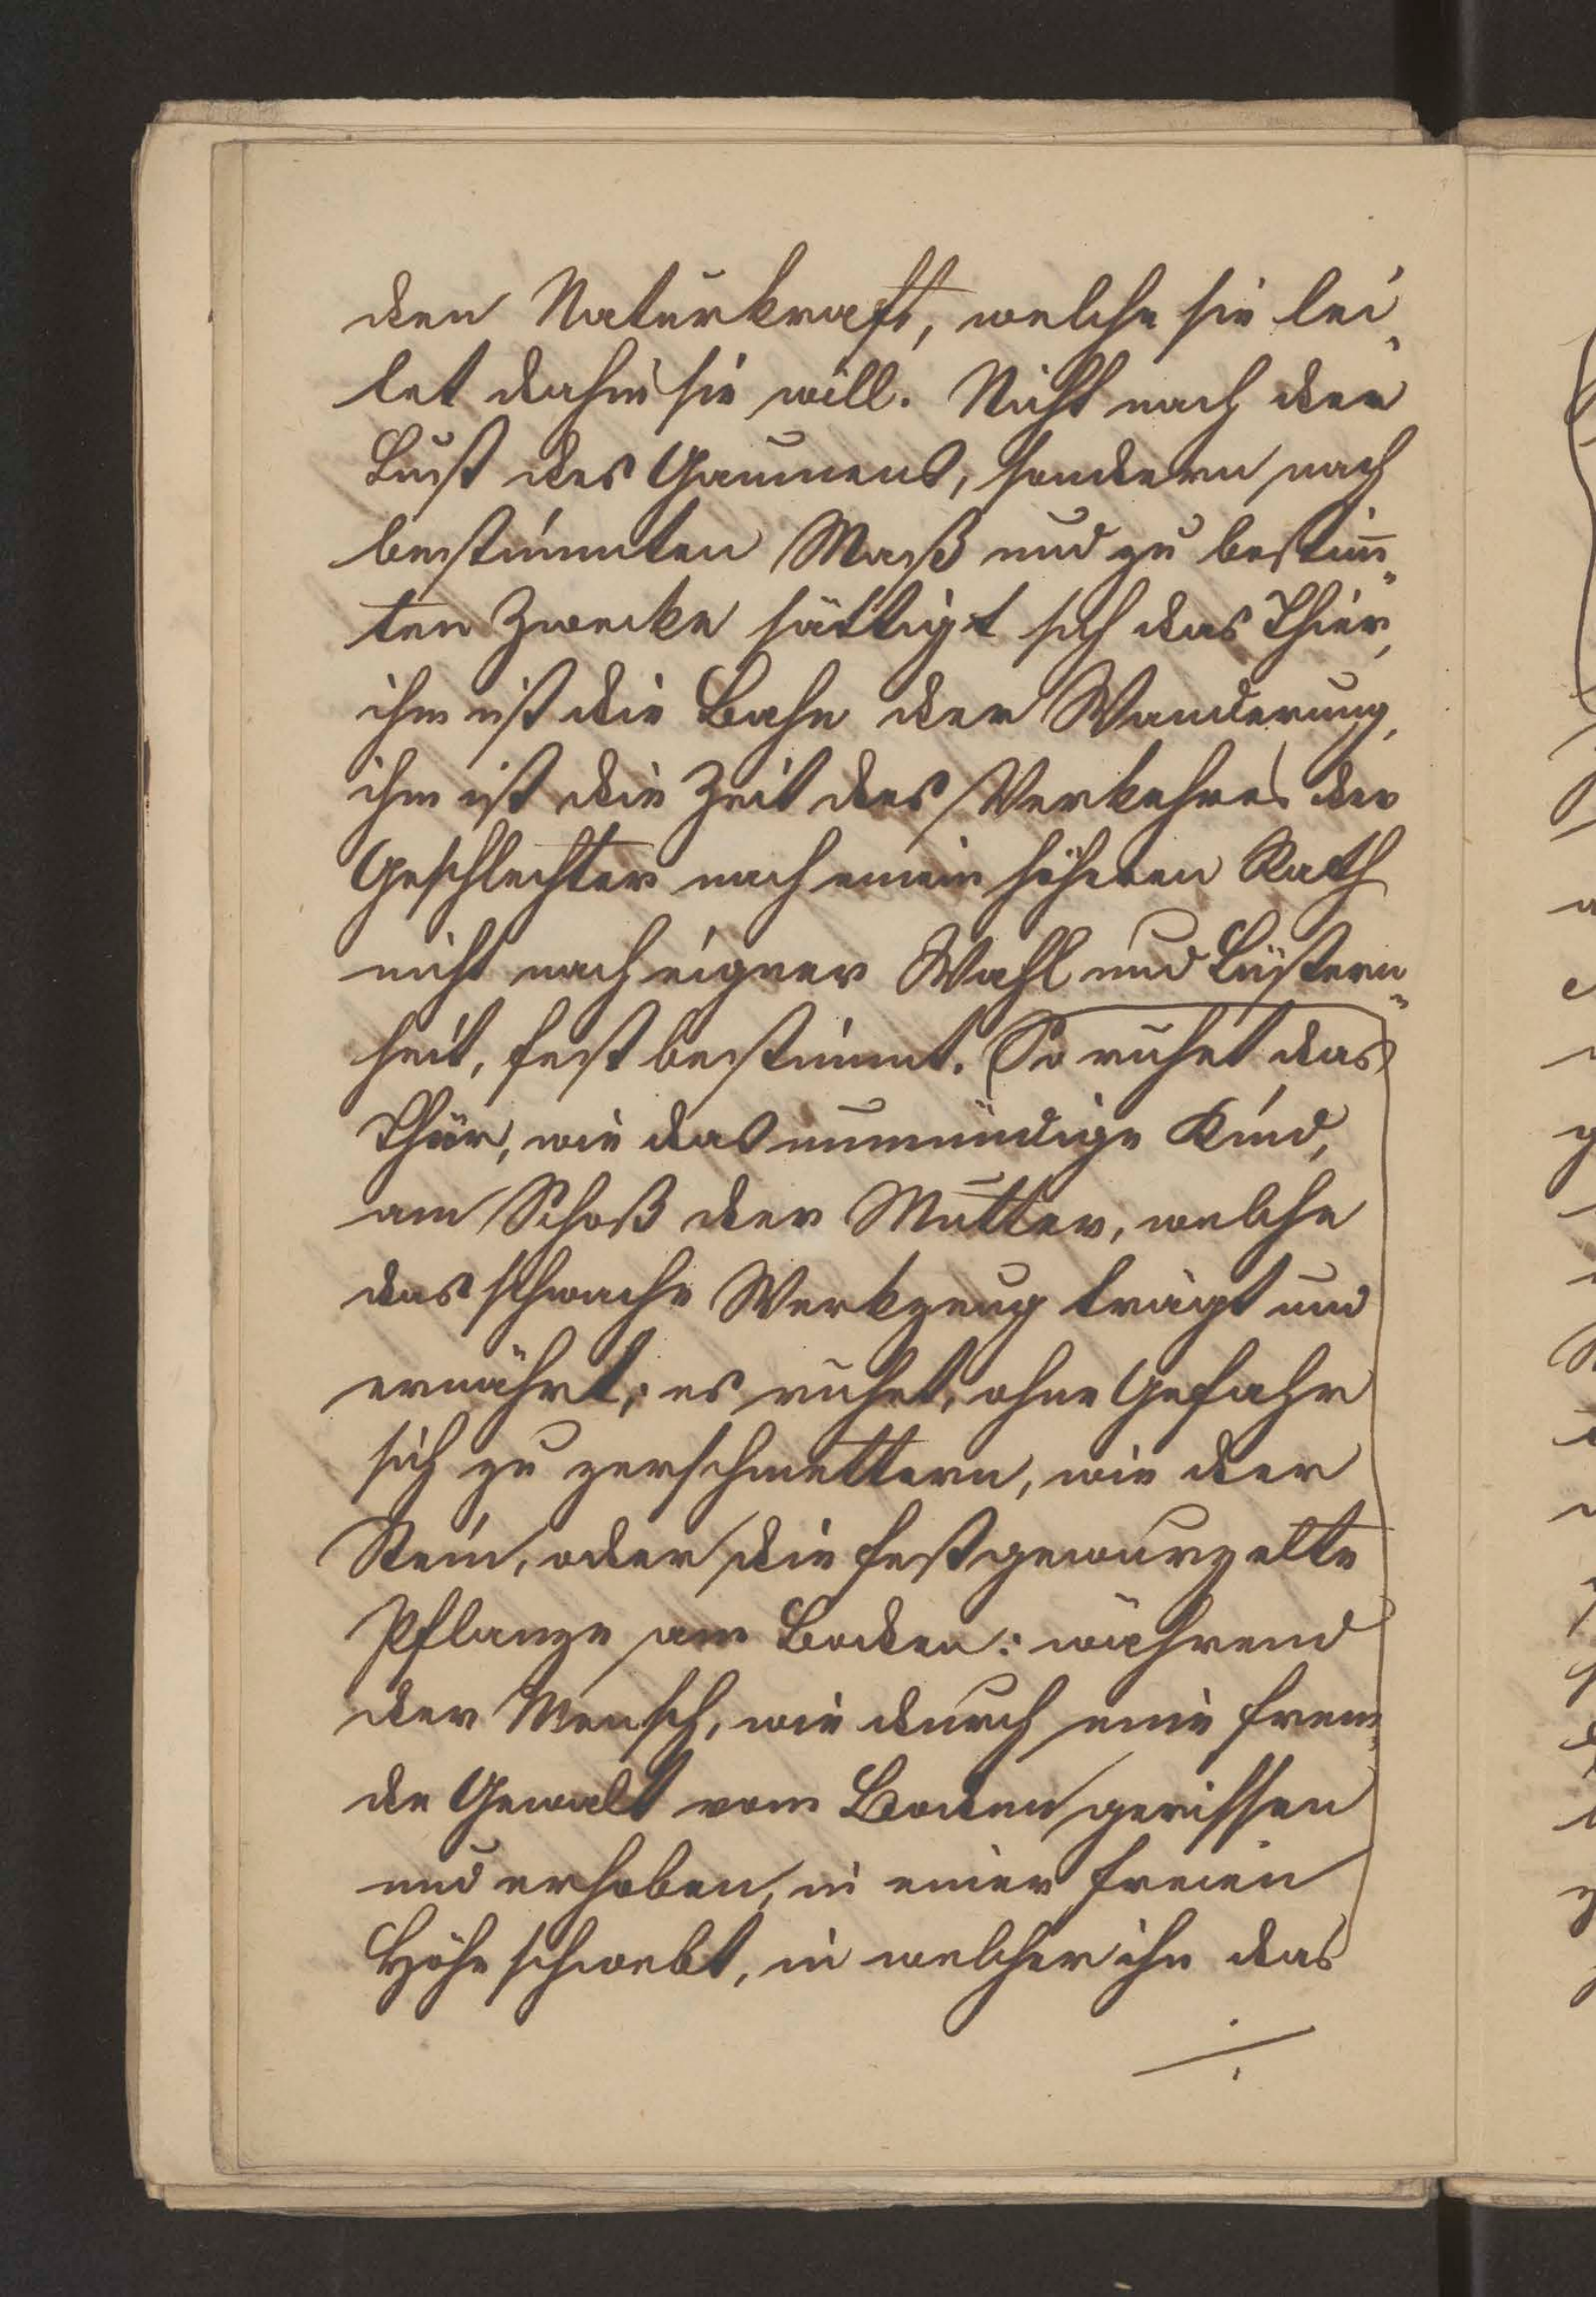 den Naturkraft, welche sie lei„
tet dahin sie will. Nicht nach der
Lust des Gaumens, sondern nach
bestimmten Maß und zu bestim̅„
ten Zwecke sättigt sich das Thier,
ihm ist die Bahn der Wanderung,
ihm ist die Zeit des Verkehres der
Geschlechter nach einem höheren Rath
nicht nach eigner Wahl und Lüstern„
heit, fest bestimmt. So ruhet das
Thier, wie das unmündige Kind,
am Schoß der Mutter, welche
das schwache Werkzeug trägt und
ernährt; es ruhet, ohne Gefahr
sich zu zerschmettern, wie der
Stein, oder die festgewurzelte
Pflanze am Boden: während
der Mensch, wie durch eine frem„
de Gewalt vom Boden gerissen
und erhoben, in einer freien
Höhe schwebt, in welcher ihn das